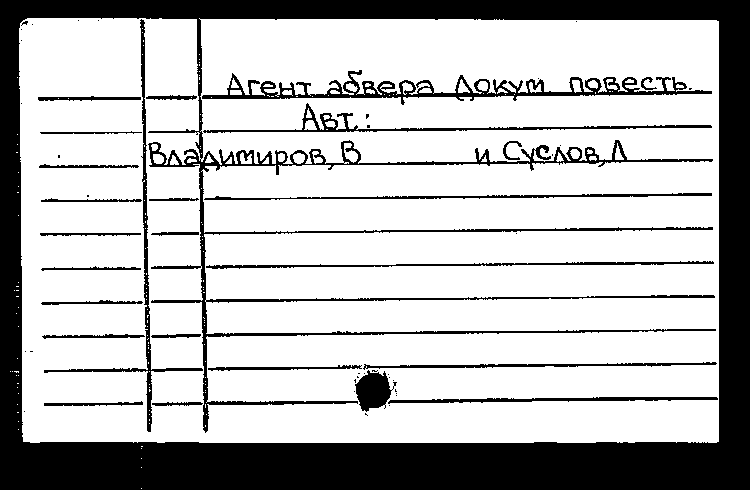 Агент абвера Докум повесть.
Авт.:
Владимиров, В и Суслов, Л